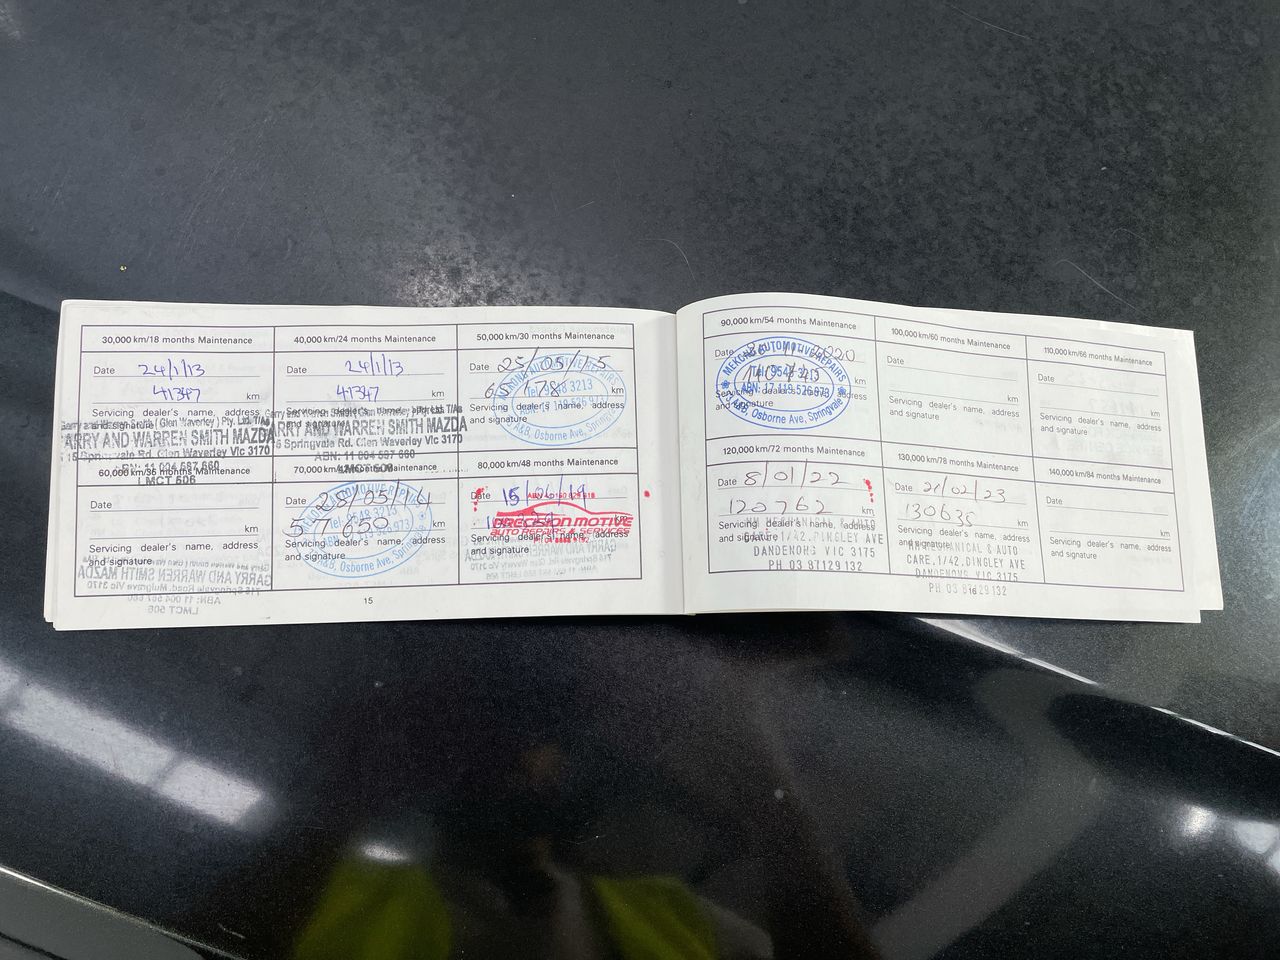 30,000 km/18 months Maintenance
Date 24/1/13
41347 km
Servicing dealer's name, address
and signature
ARRY AND WARREN SMITH MAZDA
Springvale Rd. Glen Waverley Vic 3170
ABN: 11 004 597 660
LMCT 506
40,000 km/24 months Maintenance
Date 24/1/13
41347 km
Servicing dealer's name, address
and signature
GARRY AND WARREN SMITH MAZDA
Springvale Rd. Glen Waverley Vic 3170
ABN: 11 004 597 660
LMCT 506
50,000 km/30 months Maintenance
Date 25/05/15
65 178 km
Servicing dealer's name, address
and signature
AUTOMOTIVE REPAIRS
Tel: 9548 3213
A&B, Osborne Ave, Springvale
60,000 km/36 months Maintenance
Date
km
Servicing dealer's name, address
and signature
70,000 km/42 months Maintenance
Date 28/05/14
57 650 km
AUTOMOTIVE REPAIRS
Tel: 9548 3213
Servicing dealer's name, address
and signature
A&B, Osborne Ave, Springvale
80,000 km/48 months Maintenance
Date
km
PRECISION MOTIVE
AUTO REPAIRS & SERVICES
Servicing dealer's name, address
and signature
15
90,000 km/54 months Maintenance
Date 2020
AUTOMOTIVE REPAIRS
Tel: 9548 3213
km
ABN: 17 119 526 973
Servicing dealer's name, address
and signature
A&B, Osborne Ave, Springvale
100,000 km/60 months Maintenance
Date
km
Servicing dealer's name, address
and signature
110,000 km/66 months Maintenance
Date
km
Servicing dealer's name, address
and signature
120,000 km/72 months Maintenance
Date 8/01/22
120762 km
Servicing dealer's name, address
and signature
MECHANICAL & AUTO
CARE, 1/42, DINGLEY AVE
DANDENONG VIC 3175
PH 03 87129132
130,000 km/78 months Maintenance
Date 21/02/23
130635 km
Servicing dealer's name, address
and signature
MECHANICAL & AUTO
CARE, 1/42, DINGLEY AVE
DANDENONG VIC 3175
PH 03 87129132
140,000 km/84 months Maintenance
Date
km
Servicing dealer's name, address
and signature
16